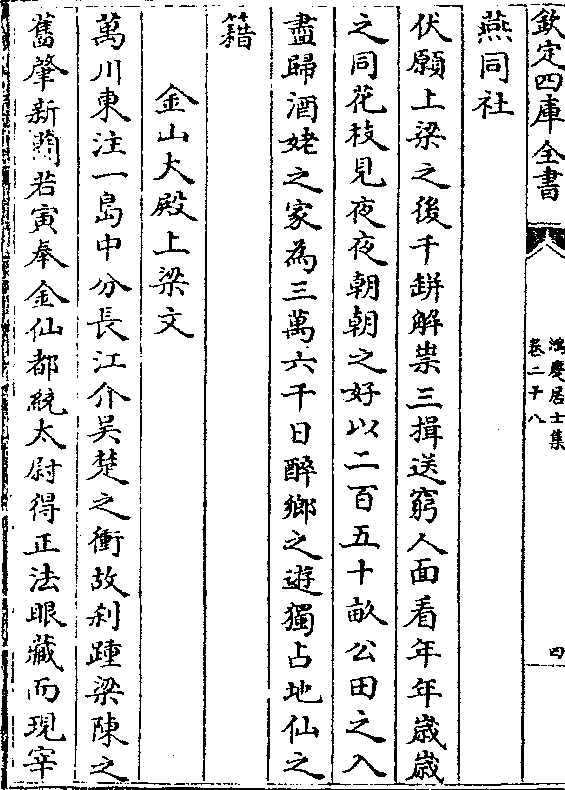 欽定四庫全書
鴻慶居士集
卷二十八
四
燕同社
伏願上梁之後千缾解祟三揖送窮人面看年年歲歲
之同花枝見夜夜朝朝之好以二百五十畝公田之入
盡歸酒姥之家為三萬六千日醉鄉之遊獨占地仙之
籍
金山大殿上梁文
萬川東注一島中分長江介吳楚之衝故刹踵梁陳之
舊肇新蘭若寅奉金仙都統太尉得正法眼藏而現宰